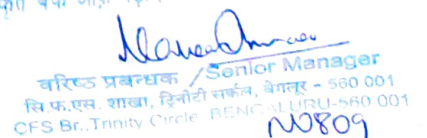 वरिष्ठ प्रबन्धक / Senior Manager
सि.फ.एस. शाखा, ट्रिनीटी सर्कल, बेंगलूर - 560 001
CFS Br., Trinity Circle BENGALURU-560 001
N0809